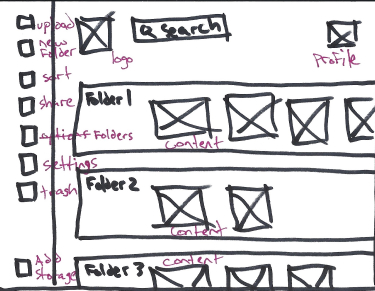 upload
new
Folder
sort
share
options Folders
settings
trash
Add
Storage
logo
Search
Profile
Folder 1
content
Folder 2
content
Folder 3
content